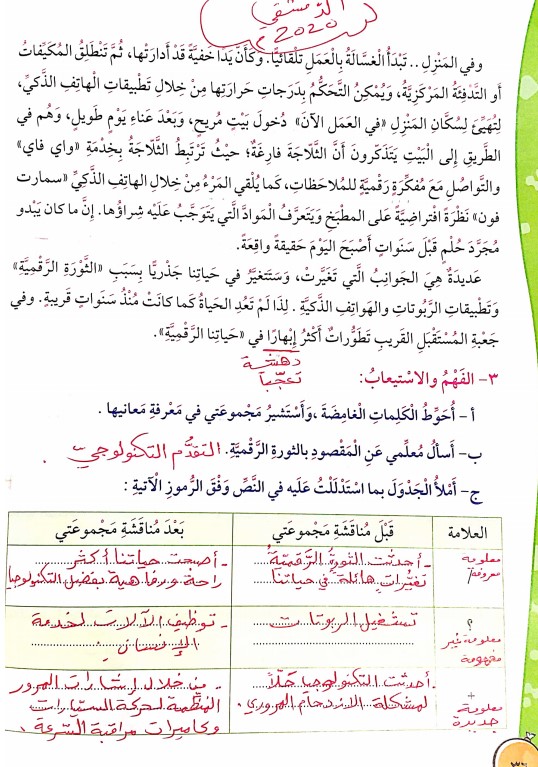 الدمشقي
2020
وفي المَنْزِلِ .. تَبْدَأُ الْغَسَّالَةُ بِالْعَمَلِ تِلْقائِيًّا. وَكَأَنَّ يَدًا خَفِيَّةً قَدْ أَدارَتْها، ثُمَّ تَنْطَلِقُ المُكَيِّفاتُ
أَوِ التَّدْفِئَةُ المَرْكَزِيَّةُ، وَيُمْكِنُ التَّحَكُّمُ بِدَرَجاتِ حَرارَتِها مِنْ خِلالِ تَطْبيقاتِ الْهاتِفِ الذَّكِيِّ،
لِتُهَيِّئَ لِسُكَّانِ المَنْزِلِ «في العَمَلِ الآنَ» دُخولَ بَيْتٍ مُريحٍ، وَبَعْدَ عَناءِ يَوْمٍ طَويلٍ، وَهُم في
الطَّريقِ إِلى الْبَيْتِ يَتَذَكَّرونَ أَنَّ الثَّلاجَةَ فارِغَةٌ؛ حَيْثُ تَرْتَبِطُ الثَّلاجَةُ بِخِدْمَةِ «واي فاي»
والتَّواصُلِ مَعَ مُفَكِّرَةٍ رَقْمِيَّةٍ للمُلاحَظاتِ، كَما يُلْقي المَرْءُ مِنْ خِلالِ الهاتِفِ الذَّكِيِّ «سمارت
فون» نَظْرَةً افْتِراضِيَّةً عَلى المَطْبَخِ وَيَتَعرَّفُ المَوادَّ الَّتي يَتَوَجَّبُ عَلَيْهِ شِراؤُها. إِنَّ ما كان يَبْدو
مُجَرَّدَ حُلْمٍ قَبْلَ سَنَواتٍ أَصْبَحَ اليَوْمَ حَقيقَةً واقِعَةً.
عَديدَةٌ هِيَ الجَوانِبُ الَّتي تَغَيَّرَتْ، وَسَتَتَغَيَّرُ في حَياتِنا جَذْرِيًّا بِسَبَبِ «الثَّوْرَةِ الرَّقْمِيَّةِ»
وَتَطْبيقاتِ الرُّبُوتاتِ والهَواتِفِ الذَّكِيَّةِ . لِذَا لَمْ تَعُدِ الحَياةُ كَما كانَتْ مُنْذُ سَنَواتٍ قَريبَةٍ. وَفي
جَعْبَةِ المُسْتَقْبَلِ القَريبِ تَطَوُّراتٌ أَكْثَرُ إِبْهارًا في «حَياتِنا الرَّقْمِيَّةِ».
دهشة
تعجّبا
٣- الفَهْمُ والاسْتيعابُ:
أ - أُحَوِّطُ الكَلِماتِ الغامِضَةَ ،وَأَسْتَشيرُ مَجْموعَتي في مَعْرِفَةِ مَعانيها .
ب- أَسأَلُ مُعلِّمي عَنِ المَقْصودِ بالثورةِ الرَّقْمِيَّةِ. التقدُّم التكنولوجي
ج- أَمْلأُ الجَدْوَلَ بما اسْتَدْلَلْتُ عَلَيه في النَّصِّ وَفْقَ الرُّموزِ الْآتيةِ :
العلامة قَبْلَ مُناقَشَةِ مَجْموعَتي بَعْدَ مُناقَشَةِ مَجْموعَتي
معلومة معروفة - أحدثت الثورةُ الرَّقميّةُ تغيُّراتٍ هائلةً في حياتنا - أصبحت حياتنا أكثر راحة ورفاهية بفضل التكنولوجيا
؟ معلومة غير مفهومة تشغيل الربوتات - توظيف الآلات لخدمة الإنسان
+ معلومة جديدة - أحدثت التكنولوجيا حَلّاً لمشكلة الازدحام المروري. - من خلال إشارات المرور المنظمة لحركة السيارات وكاميرات مراقبة السّرعة .